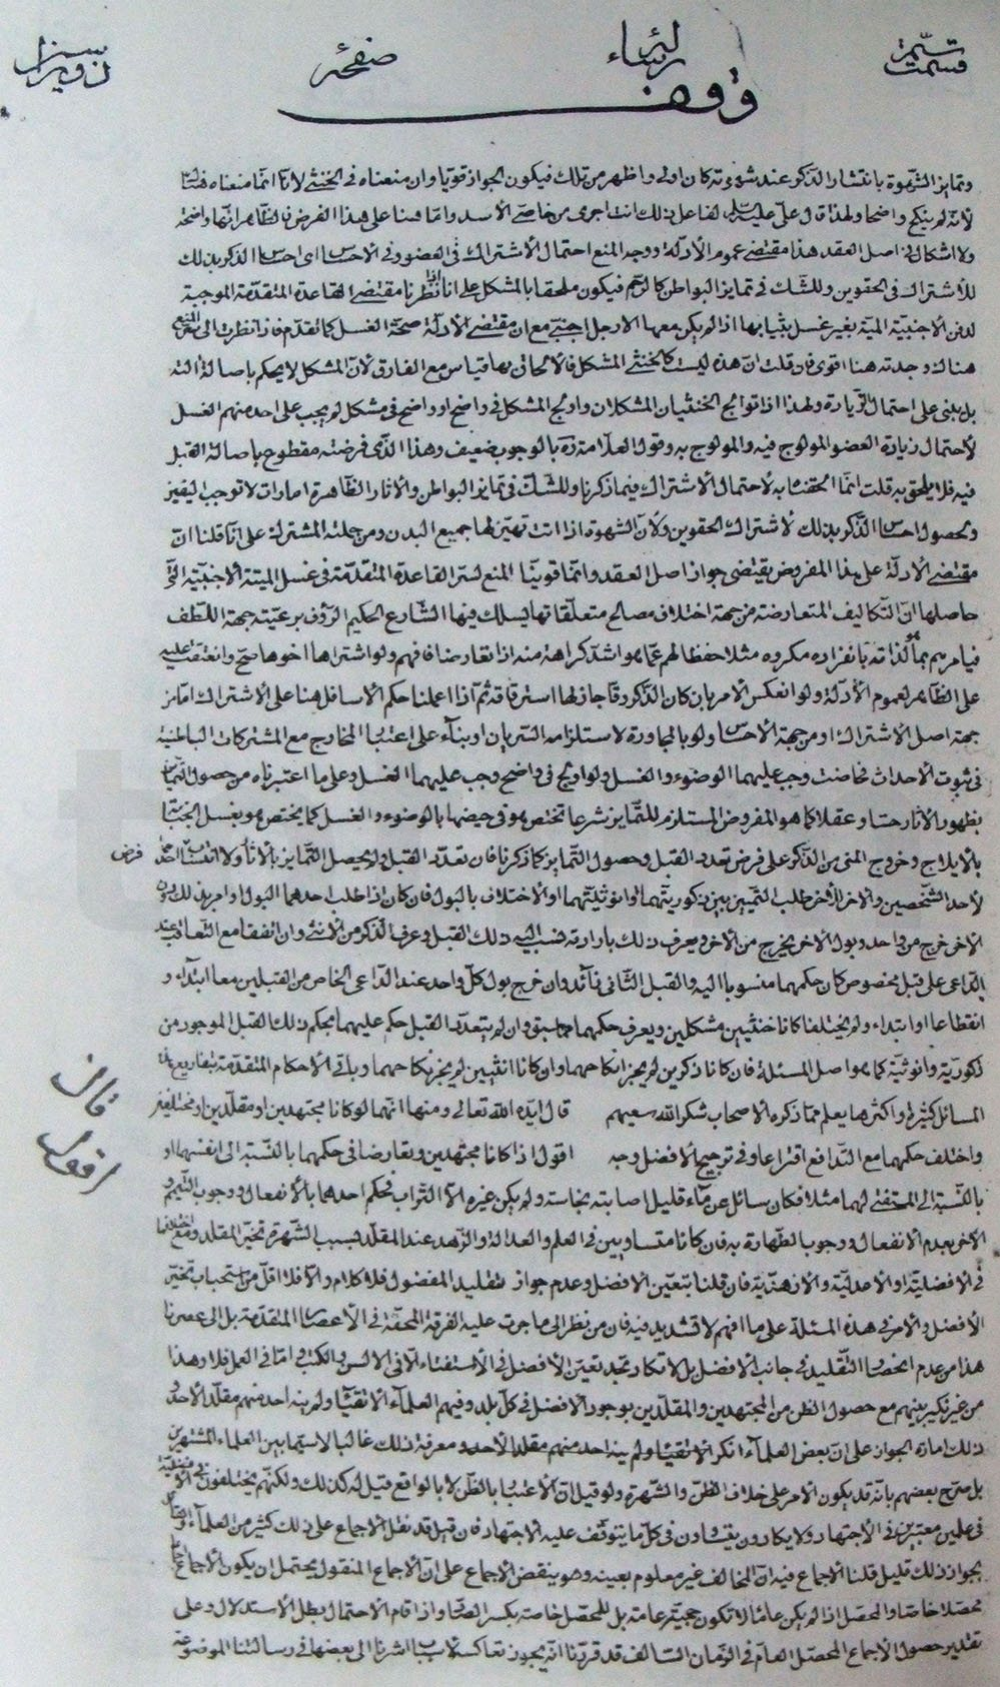 وقف
وتمايز الشهوة بانتشار الذكر عند شهوته كان اولى واظهر من تلك فيكون الجواز قويا وان منعناه في الخنثى لانا انما منعناه هنا
لانه لم ينكح واضحا ولهذا قال علي عليه السلم لفاعل ذلك انت اجرى من خاصي الاسد واما هنا على هذا الفرض فالظاهر انها واضحة
ولا اشكال في اصل العقد هذا مقتضى عموم الادلة ووجه المنع احتمال الاشتراك في العضو وفي الاحساس اى احساس الذكر بذلك
للاشتراك في الحقوين وللشك في تمايز البواطن كالرحم فيكون ملحقا بالمشكل على انا اذا نظرنا مقتضى القاعدة المتقدمة الموجبة
لدفن الاجنبية الميتة بغير غسل بثيابها اذا لم يكن معها الا رجل اجنبي مع ان مقتضى الادلة صحة الغسل كما تقدم فاذا نظرت الى
هناك وجدته هنا اقوى فان قلت ان هذه ليست كالخنثى المشكل فالالحاق بها قياس مع الفارق لان المشكل لا يحكم باصالة
بل يبنى على احتمال الزيادة ولهذا اذا توالج الخنثيان المشكلان واولج المشكل في واضح او واضح في مشكل لم يجب على احد منهم الغسل
لاحتمال زيادة العضو المولوج فيه والمولوج به وقول العلامة ره بالوجوب ضعيف وهذا الذى فرضته مقطوع باصالة القبل
فيه فلا يلحق به قلت انما الحقناه به لاحتمال الاشتراك فيما ذكرنا وللشك في تمايز البواطن والاثار الظاهرة امارات لا توجب اليقين
ولحصول احساس الذكر بذلك لاشتراك الحقوين ولان الشهوة اذا اتت تهتز لها جميع البدن ومن جملته المشترك على انا قلنا ان
مقتضى الادلة على هذا المفروض يقتضى جواز اصل العقد وانما قوينا المنع لسر القاعدة المتقدمة في غسل الميتة الاجنبية التى
حاصلها ان التكاليف المتعارضة من جهة اختلاف مصالح متعلقاتها يسلك فيها الشارع الحكيم الرؤف برعيته جهة اللطف
فيامرهم بما لذاته بانفراده مكروه مثلا حفظا لهم عما هو اشد كراهة منه اذا تعارضا فافهم ولو اشتراها اخوها صح وانعتقت عليه
على الظاهر لعموم الادلة ولو انعكس الامر بان كان الذكر رقا جاز لها استرقاقه ثم اذا اعملنا حكم الاسافل هنا على الاشتراك اما من
جهة اصل الاشتراك او من جهة الاحساس ولو بالمجاورة لاستلزامه السريان او بناء على اعتبار المخارج مع المشتركات الباطنة
في ثبوت الاحداث فحاضت وجب عليهما الوضوء والغسل ولو اولج في واضح وجب عليهما الغسل وعلى ما اعتبرناه من حصول التمايز
بظهور الاثار حسا وعقلا كما هو المفروض المستلزم للتمايز شرعا تختص هى في حيضها بالوضوء والغسل كما يختص هو بغسل الجنابة
بالايلاج وخروج المنى من الذكر على فرض تعدد القبل وحصول التمايز كما ذكرنا فان تعدد القبل ولم يحصل التمايز بالاثار ولا
لاحد الشخصين والاخر للاخر طلب التمييز بين ذكوريتهما وانوثيتهما او الاختلاف بالبول فان كان اذا طلب احدهما البول او امر بذلك دون
الاخر خرج من واحد وبول الاخر يخرج من الاخر ويعرف ذلك بارادته نسب اليه ذلك القبل وعرف الذكر من الانثى وان اتفقا مع التعاقب عند
الداعى على قبل مخصوص كان حكمهما منسوبا اليه والقبل الثانى زائد وان خرج بول كل واحد عند الداعى الخاص من القبلين معا ابتداء و
انقطاعا او ابتداء ولم يختلفا كانا خنثيين مشكلين ويعرف حكمهما مما سبق وان لم يتعدد القبل حكم عليهما بحكم ذلك القبل الموجود من
ذكورية وانوثية كما هو اصل المسئلة فان كانا ذكرين لم يجز انكاحهما وان كانا انثيين لم يجز نكاحهما وباقى الاحكام المتقدمة بتفاريع
المسائل كثيرة واكثرها يعلم مما ذكره الاصحاب شكر الله سعيهم قال ايده الله تعالى ومنها انهما لو كانا مجتهدين او مقلدين او مختلفين
واختلف حكمهما مع التدافع اقتراعا وفي ترجيح الافضل وجه اقول اذا كانا مجتهدين وتعارضا في حكمهما بالنسبة الى انفسهما او
بالنسبة الى المستفتى لهما مثلا فكان سائل عن ماء قليل اصابته نجاسة ولم يكن غيره الا التراب فحكم احدهما بالانفعال ووجوب التيمم و
الاخر بعدم الانفعال ووجوب الطهارة به فان كانا متساويين في العلم والعدالة والزهد عند المقلد بسبب الشهرة تخير المقلد ومع اختلافهما
في الافضلية او الاعدلية والازهدية فان قلنا بتعين الافضل وعدم جواز تقليد المفضول فلا كلام والا فلا اقل من استحباب تخير
الافضل والامر في هذه المسئلة على ما افهم لا تشديد فيه فان من نظر الى ما جرت عليه الفرقة المحقة في الاعصار المتقدمة بل الى عصرنا
هذا من عدم انحصار التقليد في جانب الافضل بل لا تكاد تجد تعين الافضل في الاستفتاء الا في الالسن والكتب واما في العمل فلا وهذا
من غير نكير بينهم مع حصول الظن من المجتهدين والمقلدين بوجود الافضل في كل بلد وفيهم العلماء الاتقياء ولم ينه احد منهم مقلد الاخر و
ذلك امارة الجواز على ان بعض العلماء انكر الاتقياء ولم ينه احد منهم مقلد الاخر ومعرفة ذلك غالبا لا سيما بين العلماء المشتهرين
بل صرح بعضهم بانه قد يكون الامر على خلاف الظن والشهرة ولو قيل ان الاعتبار بالظن لا بالواقع قيل له كذلك ولكنهم يختلفون في الافضلية
في علمين معتبرين في الاجتهاد ولا يكادون يتفاوتون في كل ما يتوقف عليه الاجتهاد فان قيل قد نقل الاجماع على ذلك كثير من العلماء
بجواز ذلك قليل قلنا الاجماع فيه ان المخالف غير معلوم بعينه وهو ينقض الاجماع على ان الاجماع المنقول يحتمل ان يكون الاجماع
محصلا خاصا والمحصل اذا لم يكن عاما لا تكون حجيته عامة بل للمحصل خاصة بكسر الصاد واذا قام الاحتمال بطل الاستدلال وعلى
تقدير حصول الاجماع المحصل العام في الزمان السالف قد قررنا انه يجوز تعاكسه لاسباب اشرنا الى بعضها في رسالتنا الموضوعة